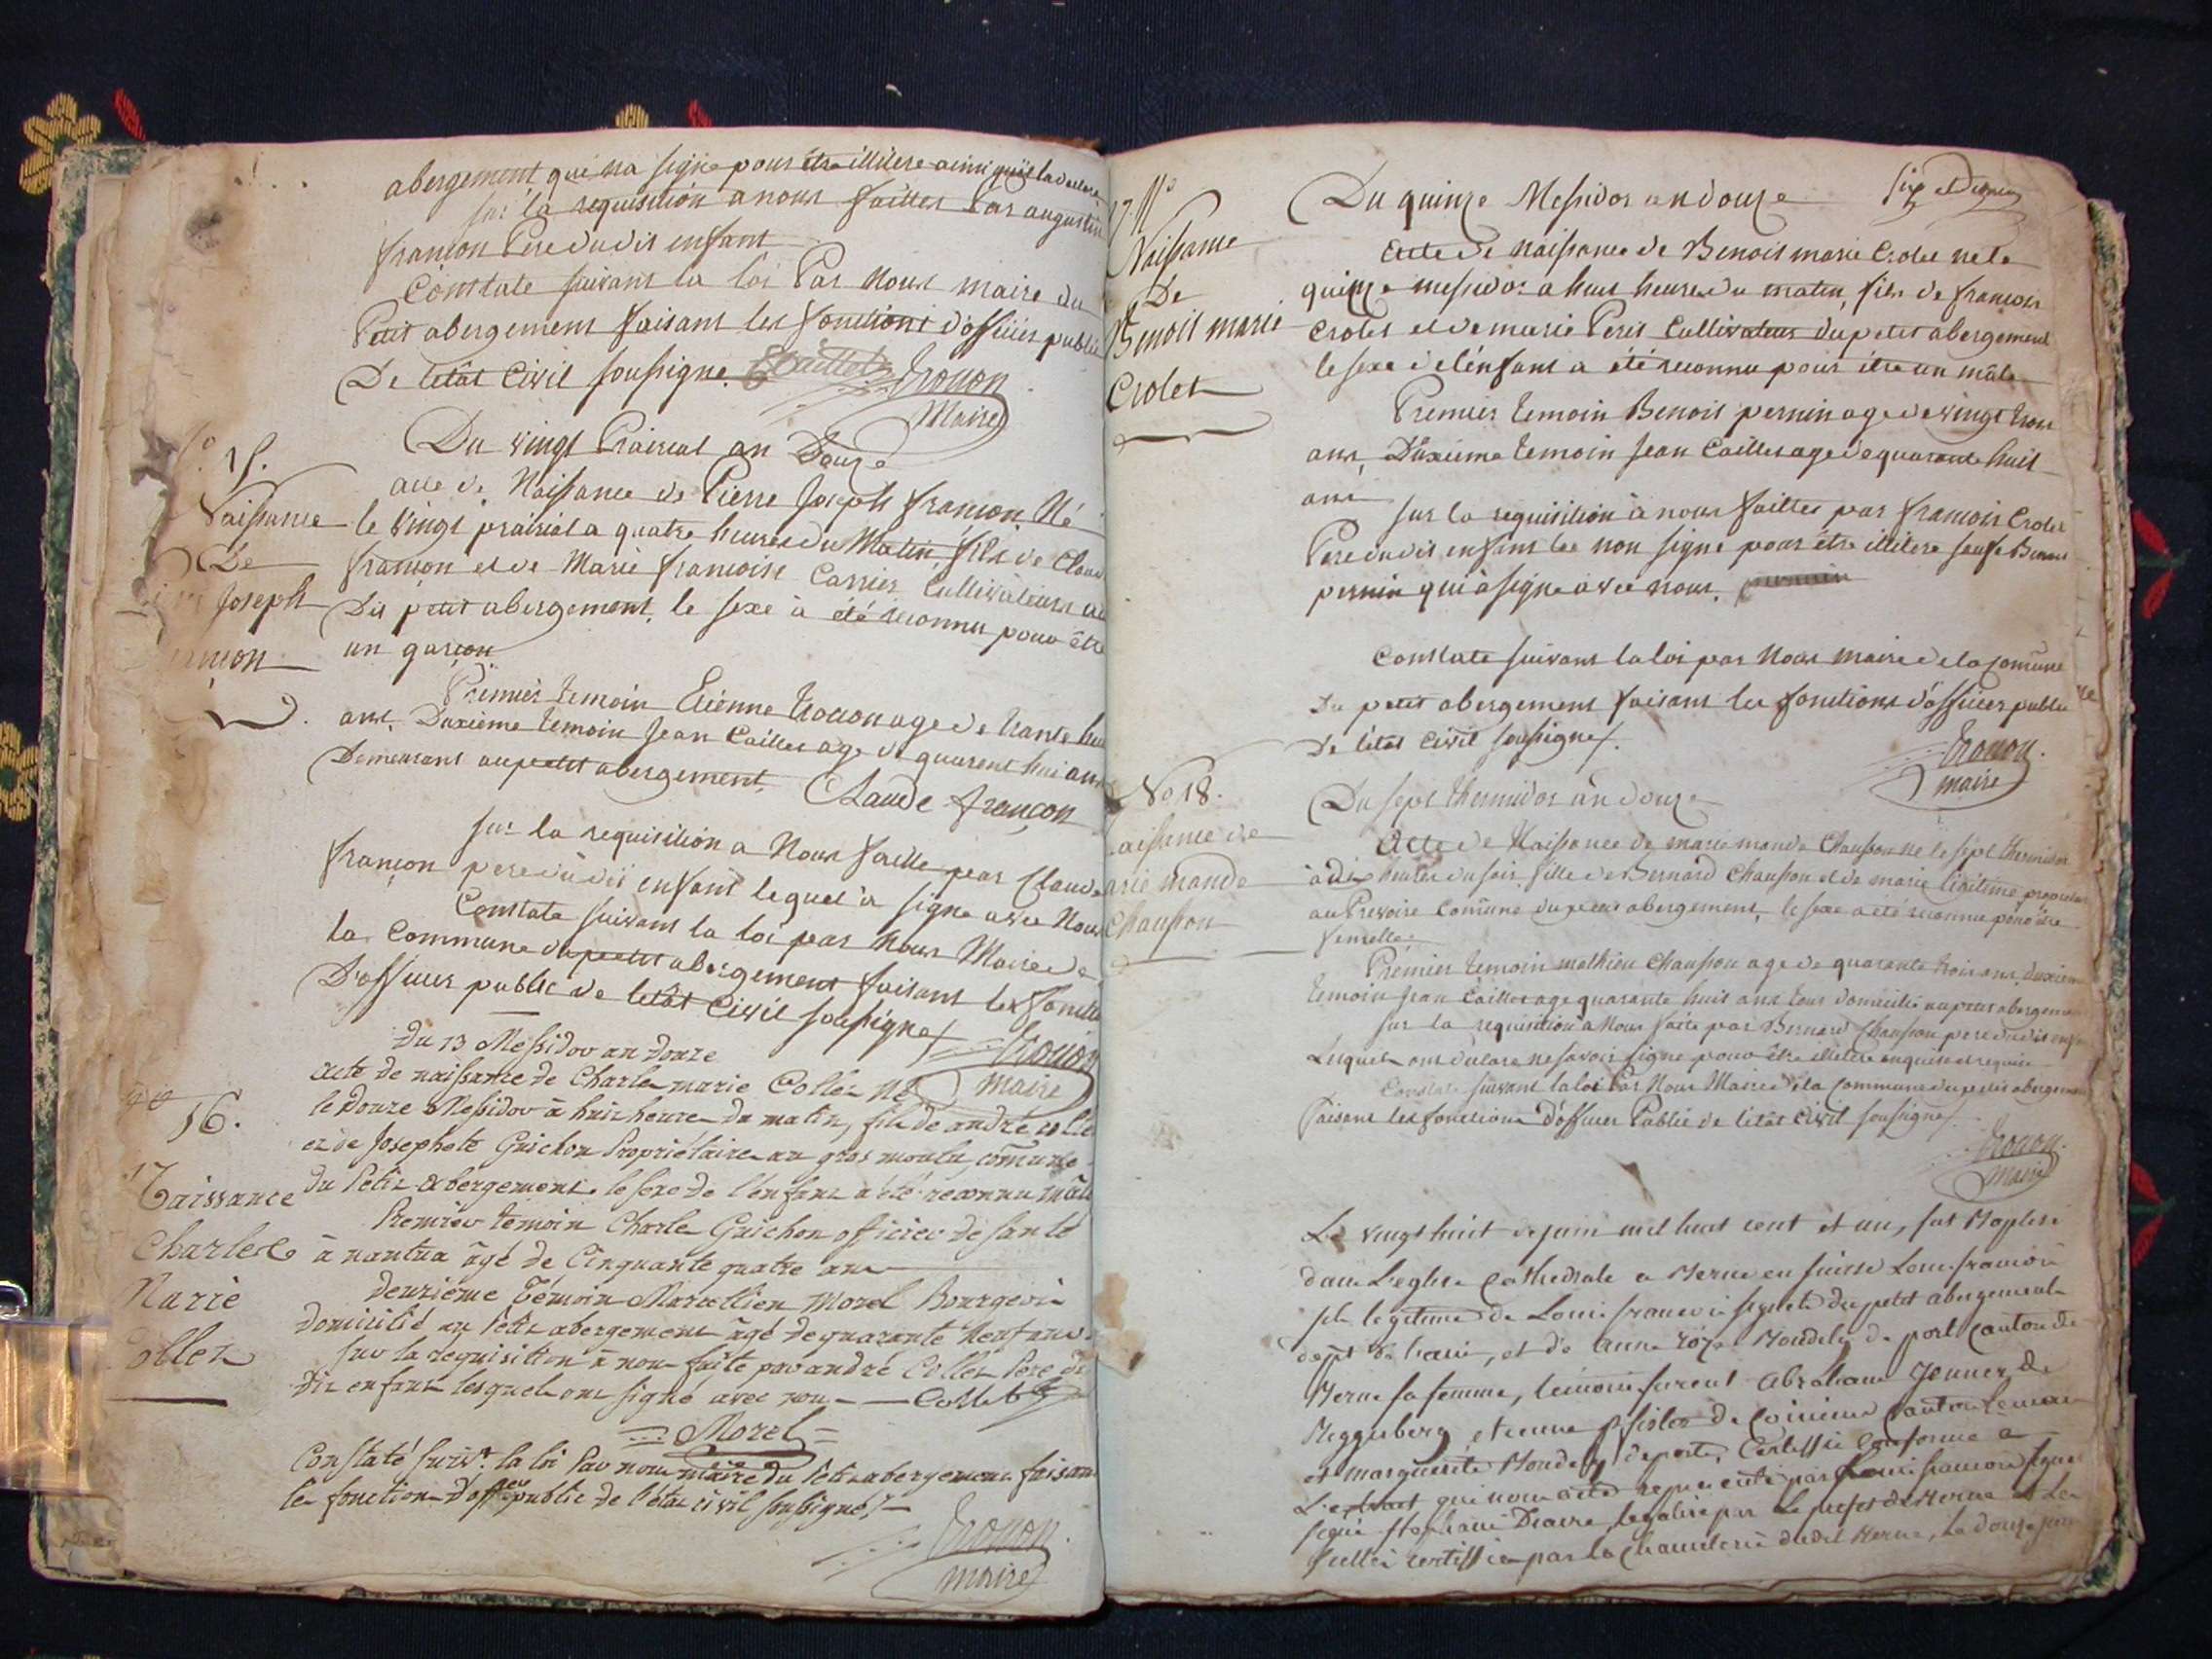 abergement qui na signe pour être illitere ainsi quil la declare
sur la requisition a nous faittes Par augustin
françon Pere dudit enfant
Constate suivant la loi Par Nous maire du
Petit abergement faisant les fonctions d'officier public
De letât Civil soussigne.
Trocon
Maire
15.
Naissance
De
Joseph
Du vingt Prairial an Douze
acte de Naissance de Pierre Joseph françon, Né
le vingt prairial a quatre heures du Matin, fils de Claude
françon et de Marie françoise Carrier Cultivateurs
Du petit abergement, le sexe à été reconnu pour être
un garçon
Premier temoin Etienne trocon age de trante huit
ans, Duxième temoin Jean Caillet age de quarent huit ans
Demeurant au petit abergement. Claude françon
sur la requisition a Nous faitte par Claude
françon pere dudit enfant lequel à signe avec Nous
Constate suivant la loi par Nous Maire de
la Commune du petit abergement faisant les foncti
D'officier public de letât Civil soussigne
Trocon
Maire
16.
Naissance
Charle
Marie
Collet
Du 13 Messidor an douze
acte de naissance de Charle marie Collet Né
le douze Messidor à huit heure du matin, fils de andré collet
et de Josephete Guichon Propriétaire au gros moulu, comune
du Petit abergement. le sexe de l'enfant a été reconnu mâle
Premier temoin Charle Guichon officier de santé
à nantua âgé de Cinquante quatre ans
deuxième Témoin Marcellien Morel Bourgeois
domicilié au Petit abergement âgé de quarante Neuf ans
sur la requisition à nous faite par andré Collet Pere du
dit enfant lesquels ont signé avec nous — Collet
Morel
Constaté suivt. la loi Par nous maire du Petit abergement faisant
les fonctions d'offeur public de l'état civil soussigné
Trocon
maire
17. No
Naissance
De
Benoit marie
Crolet
Du quinze Messidor an douze
Acte de naissance de Benoit marie Crolet ne le
quinze messidor a huit heures du matin, fils de francois
Crolet et de marie Peris Cultivateur du petit abergement
le sexe de lénfant a été reconnu pour être un mâle
Premier temoin Benoit pernin age de vingt trois
ans, Duxieme temoin Jean Caillet age de quarante huit
ans
sur la requisition à nous faittes par francois Crolet
Pere dudit enfant lee non signe pour être illitere sauf Benoit
pernin qui à signe avec nous.
Constate suivant la loi par Nous maire de la Comune
du petit abergement faisant les fonctions d'officier public
de létat civil soussigne.
Trocon.
maire
No 18.
Naissance de
marie mande
Chausson
Du sept thermidor an douze
Acte de Naissance de marie mande Chausson ne le sept thermidor
à dix heures du soir, fille de Bernard Chausson et de marie
Comune du petit abergement, le sexe a été reconnu pour être
femelle.
Premier temoin mathieu Chausson age de quarante trois ans, duxieme
temoin Jean Caillet age quarante huit ans tous domicilié au petit abergement
sur la requisition a Nous faite par Bernard Chausson pere dudit enfant
Lesquels ont declare ne savoir signe pour être illitere enquis et requis
Constate suivant la loi Par Nous Maire de la Commune du petit abergement
faisant les fonctions d'officier Public de létât Civil soussigne.
Trocon.
Maire
Le vingt huit de juin mil huit cent et un, fut Baptisé
dans L'eglise Cathedrale a Berne en suisse Louis françois
fils legitime de Louis françois du petit abergement
dept de lain, et de anne de port Canton de
Berne sa femme, temoins furent Abraham Jenner de
et marguerite de porte, Certiffie Conforme a
L'extrait qui nous a été representé par Louis françois
signé Diacre, legalisé par Le prefet de Berne et Le
certiffié par la Chancelerie dudit Berne, le douze